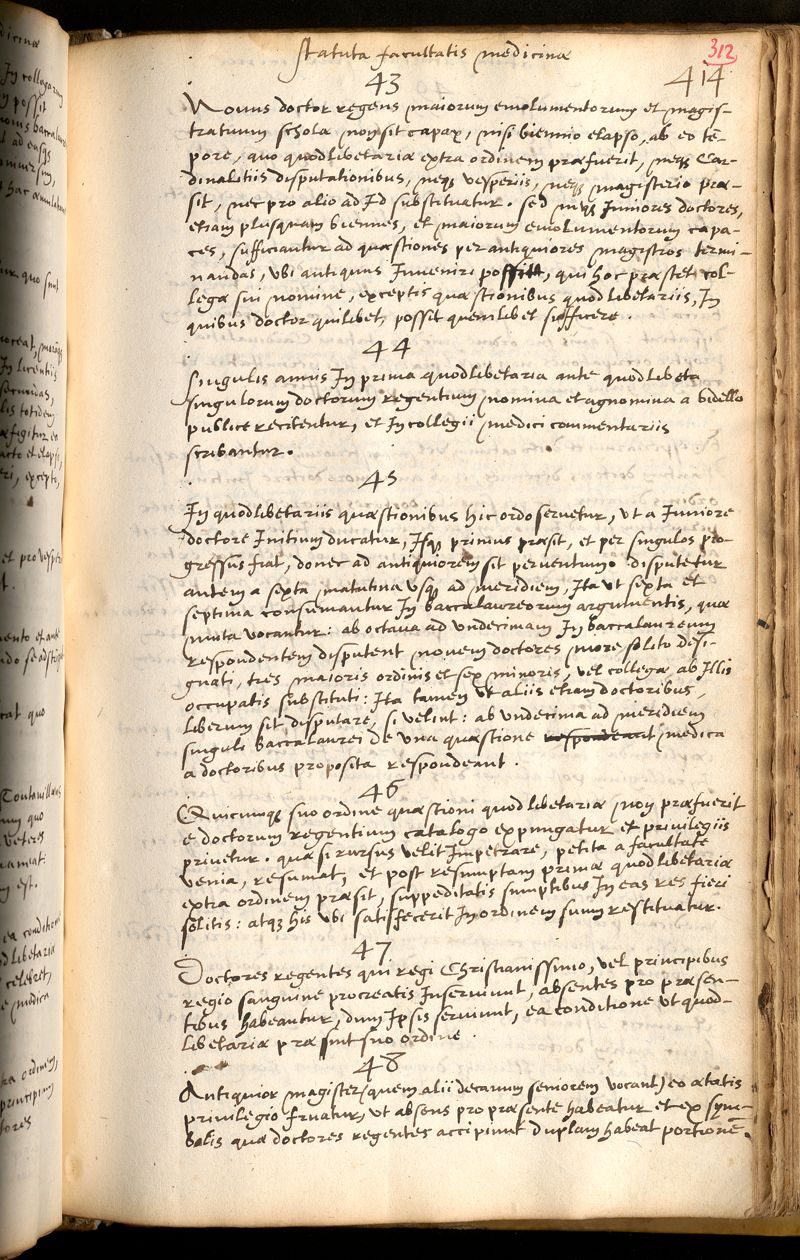 Statuta facultatis medicinæ
312
43
414
Novus doctor regens maiorum emolumentorum et magis-
tratuum scholæ non sit capax, nisi biennio elapso, ab eo tē-
pore, quo quodlibetariæ extra ordinem præfuerit, neq; Car-
dinalitiis disputationibus, neq; vesperiis, neq; magisterio præ-
sit, nec pro alio ad Id substituatur. sed neq; Iuniores doctores,
etiam plusquam biennes, et maiorum emolumentorum capa-
ces, sufficiantur ad quæstiones per antiquiores magistros termi-
nandas, ubi antiquus Inveniri possit, qui hoc præstet col-
legæ sui nomine, exceptis quæstionibus quodlibetariis, In
quibus doctor quilibet, possit quemlibet sufficere.
44
Singulis annis In prima quodlibetaria ante quodlibeta
singulorum doctorum regentium nomina et agnomina a bidello
publice recitentur, et In collegii medici commentariis
scribantur.
45
In quodlibetariis quæstionibus hic ordo servetur, ut a Iuniore
doctore Initium ducatur, Isq; primus præsit, et per singulos pro-
gressus fiat, donec ad antiquiorem sit perventum: disputetur
autem a sexta matutina usq; ad meridiem, Ita ut sexta et
septima consumantur In baccalaureorum argumentis, quæ
nuita vocantur: ab octava ad undecimam In baccalaureum
respondentem disputent novem doctores more solito desi-
gnati, tres maioris ordinis et sex minoris, vel collegæ ab Illis
occupatis substituti: Ita tamen ut aliis etiam doctoribus,
liberum sit disputare, si velint: ab undecima ad meridiem
singuli baccalaurei de una quæstione medica
a doctoribus proposita respondeant.
46
Quicumq; suo ordine quæstioni quodlibetariæ non præfuerit
e doctorum regentium catalogo expungatur et privilegiis
privetur. quæ si rursus velit Impetrare, petita a facultate
venia, resumat, et post resumptam primæ quodlibetariæ
extra ordinem præsit, suppeditatis sumptibus In eas res fieri
solitis: atq; his ubi satisfecerit In ordinem suum restituatur.
47
Doctores regentes qui regi Christianissimo, vel principibus
regio sanguine procreatis Inserviunt, absentes pro præsen-
tibus habeantur, dum Ipsis serviunt, ea conditione ut quod-
libetariæ præsint suo ordine.
48
Antiquior magister (quem alii decanum seniorem vocant) eo ætatis
privilegio fruatur, ut absens pro præsente habeatur et ex sym-
bolis quæ doctores regentes accipiunt duplam habeat portionē.